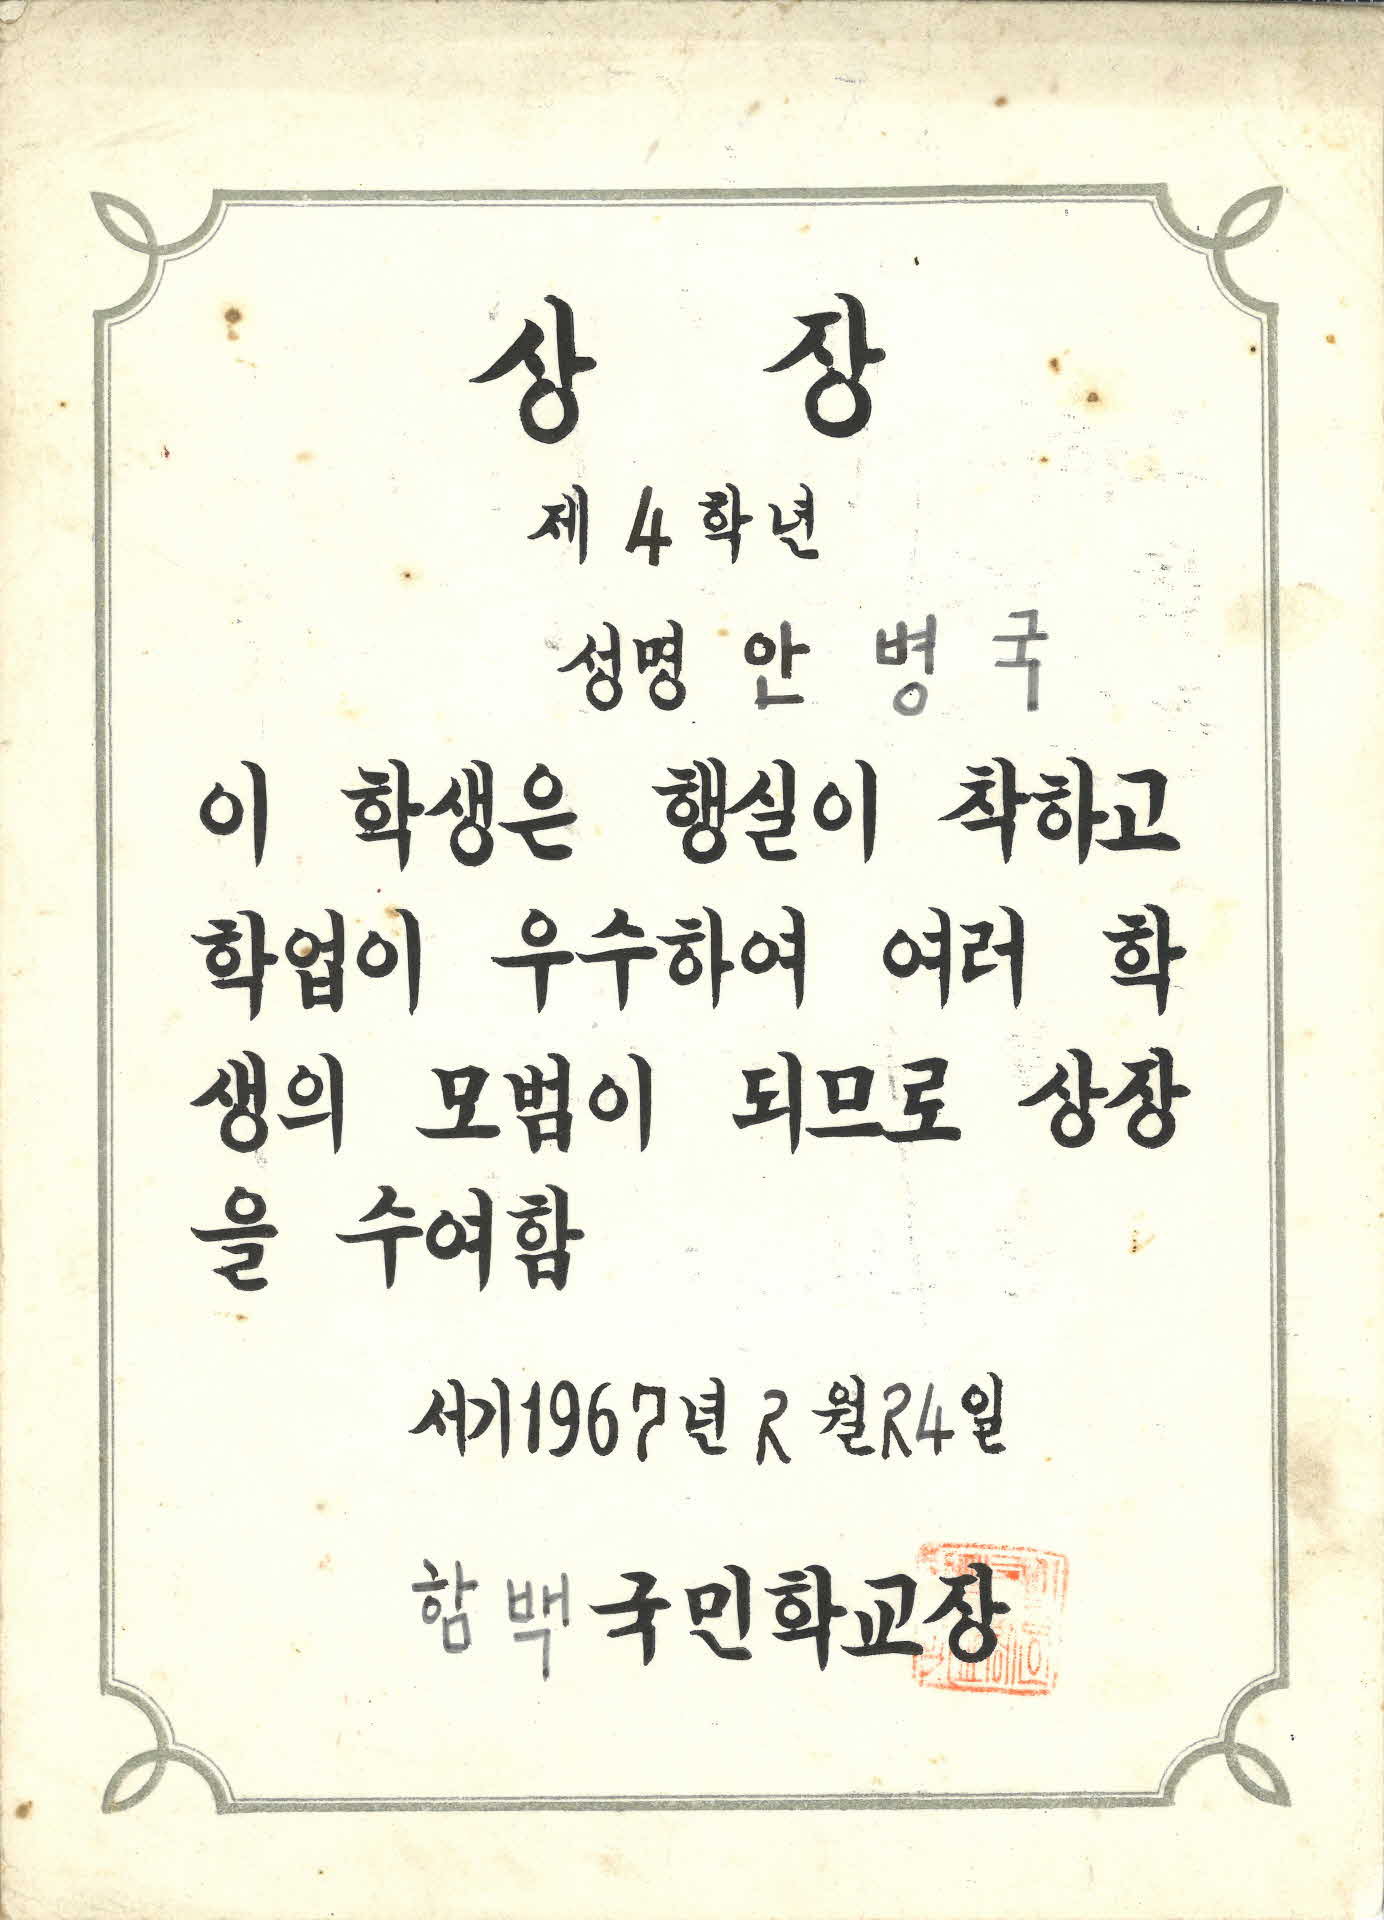 상 장
제 4 학년
성명 안 병 국
이 학생은 행실이 착하고
학업이 우수하여 여러 학
생의 모범이 되므로 상장
을 수여함
서기1967년 2 월 24일
함 백 국민학교장